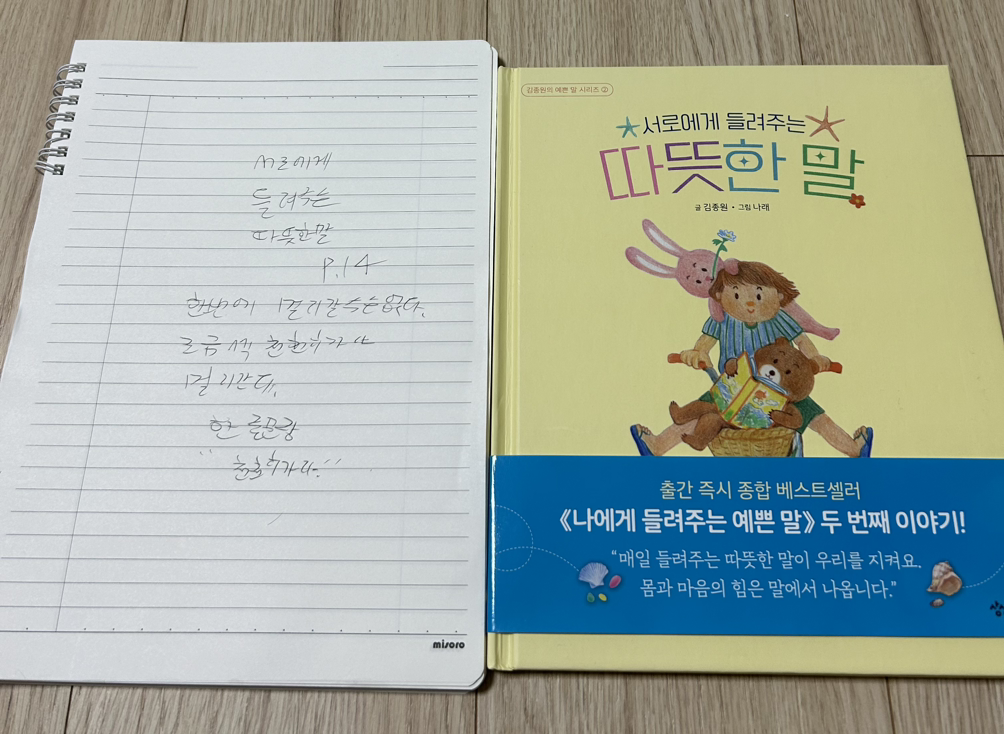 서로에게
들려주는
따뜻한말
P.14
한번에 멀리갈수는없다.
조금씩 천천히가야
멀리간다.
한 걸음랑
"천천히가라."
misoro
김종원의 예쁜 말 시리즈 ②
서로에게 들려주는
따뜻한 말
글 김종원 · 그림 나래
출간 즉시 종합 베스트셀러
《나에게 들려주는 예쁜 말》 두 번째 이야기!
“매일 들려주는 따뜻한 말이 우리를 지켜요.
몸과 마음의 힘은 말에서 나옵니다.”